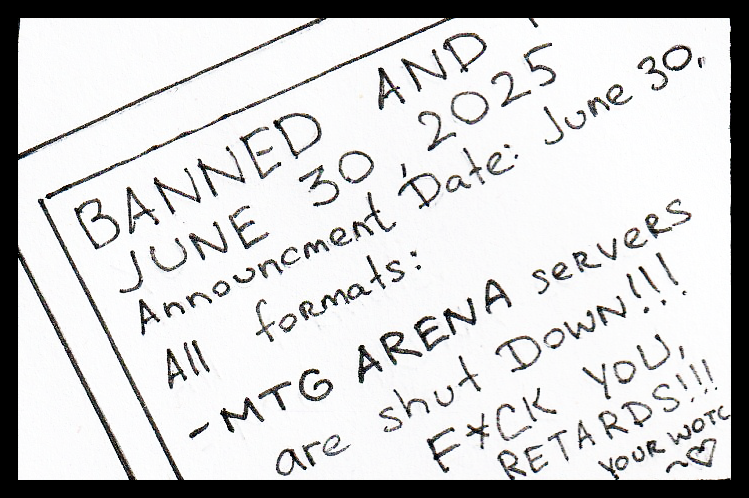 BANNED AND
JUNE 30, 2025
Announcment Date: June 30,
All formats:
-MTG ARENA servers
are shut DOWN!!!
F*CK YOU,
RETARDS!!!
YOUR WOTC
~♡